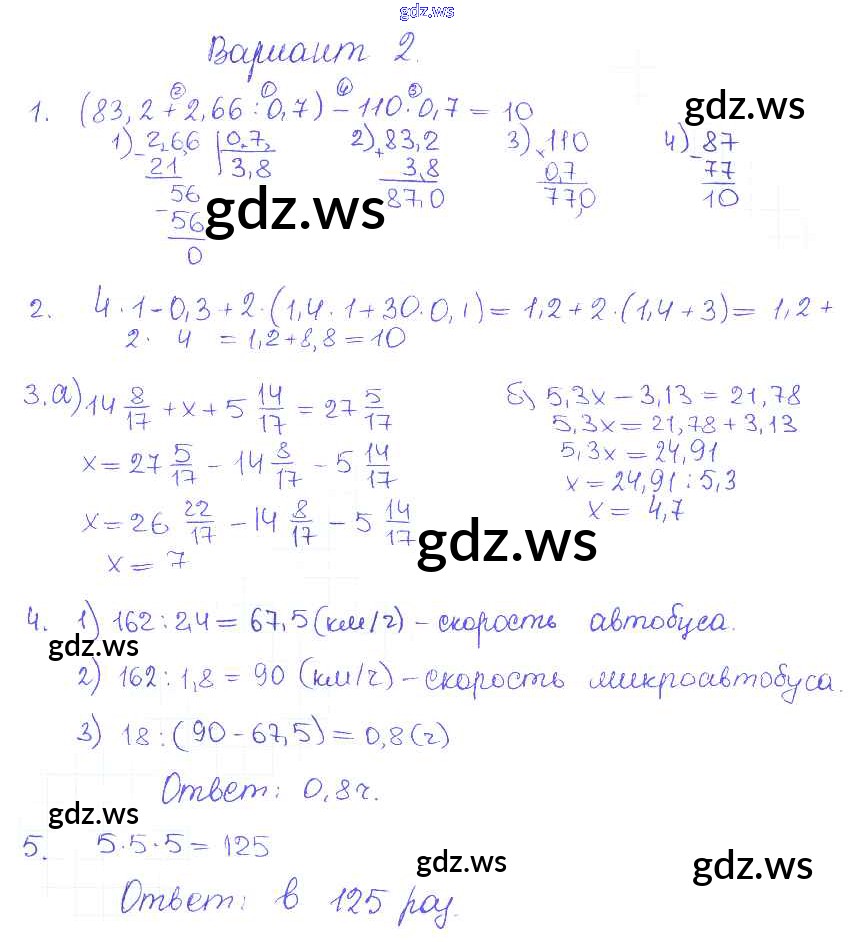 gdz.ws
Вариант 2.
1. (83,2 + 2,66 : 0,7) - 110 · 0,7 = 10
② ① ④ ③
1) 2,6,6 0,7, 2) 83,2 3) 110 4) 87
- 21 3,8 + 3,8 × 0,7 - 77
56 87,0 77,0 10
- 56
0
gdz.ws
gdz.ws
2. 4 · 1 - 0,3 + 2 · (1,4 · 1 + 30 · 0,1) = 1,2 + 2 · (1,4 + 3) = 1,2 +
2 · 4 = 1,2 + 8,8 = 10
3. а) 14 8/17 + x + 5 14/17 = 27 5/17
x = 27 5/17 - 14 8/17 - 5 14/17
x = 26 22/17 - 14 8/17 - 5 14/17
x = 7
б) 5,3x - 3,13 = 21,78
5,3x = 21,78 + 3,13
5,3x = 24,91
x = 24,91 : 5,3
x = 4,7
gdz.ws
4. 1) 162 : 2,4 = 67,5 (км/ч) - скорость автобуса.
gdz.ws
2) 162 : 1,8 = 90 (км/ч) - скорость микроавтобуса.
3) 18 : (90 - 67,5) = 0,8 (ч)
Ответ: 0,8 ч.
gdz.ws
5. 5 · 5 · 5 = 125
gdz.ws
gdz.ws
Ответ: в 125 раз.